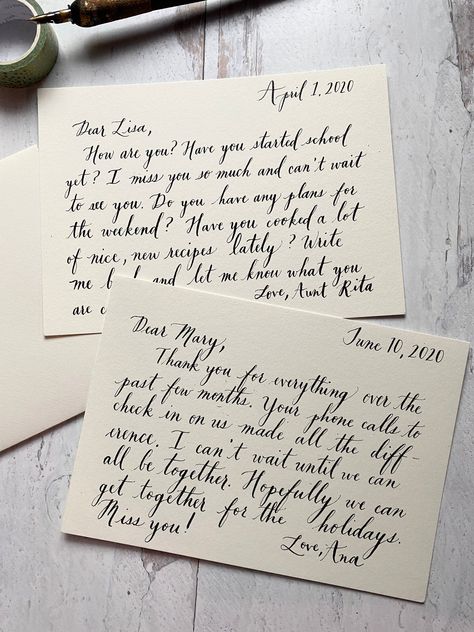 April 1, 2020
Dear Lisa,
How are you? Have you started school
yet? I miss you so much and can't wait
to see you. Do you have any plans for
the weekend? Have you cooked a lot
of nice, new recipes lately? Write
me and let me know what you
are
Love, Aunt Rita
June 10, 2020
Dear Mary,
Thank you for everything over the
past few months. Your phone calls to
check in on us made all the diff-
erence. I can't wait until we can
all be together. Hopefully we can
get together for the holidays.
Miss you!
Love, Ana